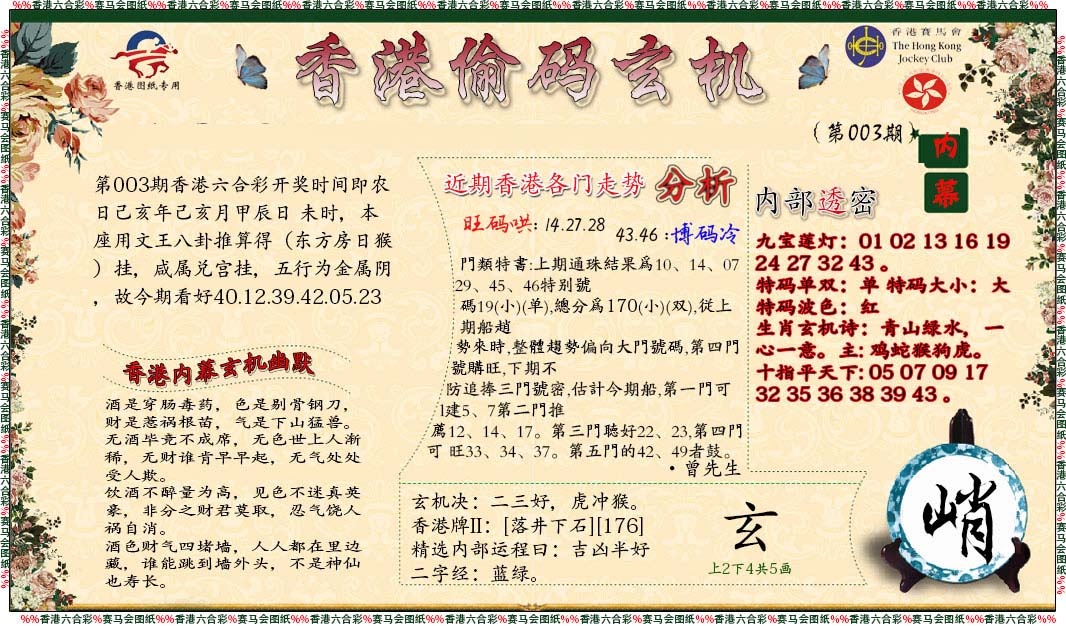 %%香港六合彩%赛马会图纸%%香港六合彩%赛马会图纸%%香港六合彩%赛马会图纸%%香港六合彩%赛马会图纸%%香港六合彩%赛马会图纸%%香港六合彩%赛马会图纸%%香港六合彩%%
香港图纸专用
香港偷码玄机
香港賽馬會
The Hong Kong
Jockey Club
(第003期)
内
幕
第003期香港六合彩开奖时间即农
日己亥年己亥月甲辰日 未时，本
座用文王八卦推算得（东方房日猴
）挂，咸属兑宫挂，五行为金属阴
，故今期看好40.12.39.42.05.23
香港内幕玄机幽默
酒是穿肠毒药，色是剔骨钢刀，
财是惹祸根苗，气是下山猛兽。
无酒毕竞不成席，无色世上人渐
稀，无财谁肯早早起，无气处处
受人欺。
饮酒不醉量为高，见色不迷真英
豪，非分之财君莫取，忍气饶人
祸自消。
酒色财气四堵墙，人人都在里边
藏，谁能跳到墙外头，不是神仙
也寿长。
近期香港各门走势 分析
旺码哄: 14.27.28
43.46 :博码冷
門類特書:上期通珠結果爲10、14、07
29、45、46特别號
碼19(小)(单),總分爲170(小)(双),從上
期船趟
勢來時,整體趨勢偏向大門號碼,第四門
號購旺,下期不
防追捧三門號密,估计今期船,第一門可
1建5、7第二門推
薦12、14、17。第三門聴好22、23,第四門
可 旺33、34、37。第五門的42、49者鼓。
・曾先生
玄机决：二三好，虎冲猴。
香港牌II：[落井下石][176]
精选内部运程曰：吉凶半好
二字经：蓝绿。
玄
上2下4共5画
内部透密
九宝莲灯：01 02 13 16 19
24 27 32 43 。
特码单双：单 特码大小：大
特码波色：红
生肖玄机诗：青山绿水，一
心一意。主: 鸡蛇猴狗虎。
十指平天下: 05 07 09 17
32 35 36 38 39 43 。
峭
%%香港六合彩%赛马会图纸%%香港六合彩%赛马会图纸%%香港六合彩%赛马会图纸%%香港六合彩%赛马会图纸%%香港六合彩%赛马会图纸%%香港六合彩%赛马会图纸%%香港六合彩%%